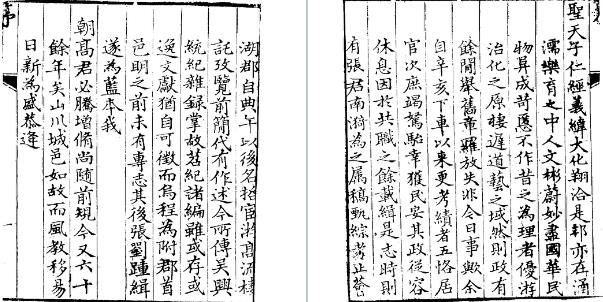 湖郡自典午以後名搢官游高流棲
託攷覽前簡代有作述今所傳吳興
統紀雜錄掌故舊紀諸編雖或存或
逸文獻猶自可徵而烏程為附郡首
邑明之前未有專志其後張劉踵緝
遂為藍本我
朝高君必騰增脩尚隨前規今又六十
餘年矣山川城邑如故而風教移易
日新為盛恭逢
聖天子仁經義緯大化翔洽是邦亦在涵
濡樂育之中人文彬蔚妙盡國華民
物阜成苛慝不作昔之為理者優游
治化之原棲遲道藝之域然則政有
餘閒舉舊章羅放失非今日事歟余
自辛亥下車以來更考績者五恪居
官次庶竭駑駘幸獲民安其政從容
休息因於共職之餘載緝是志時則
有張君南漪為之屬稿甄綜考正